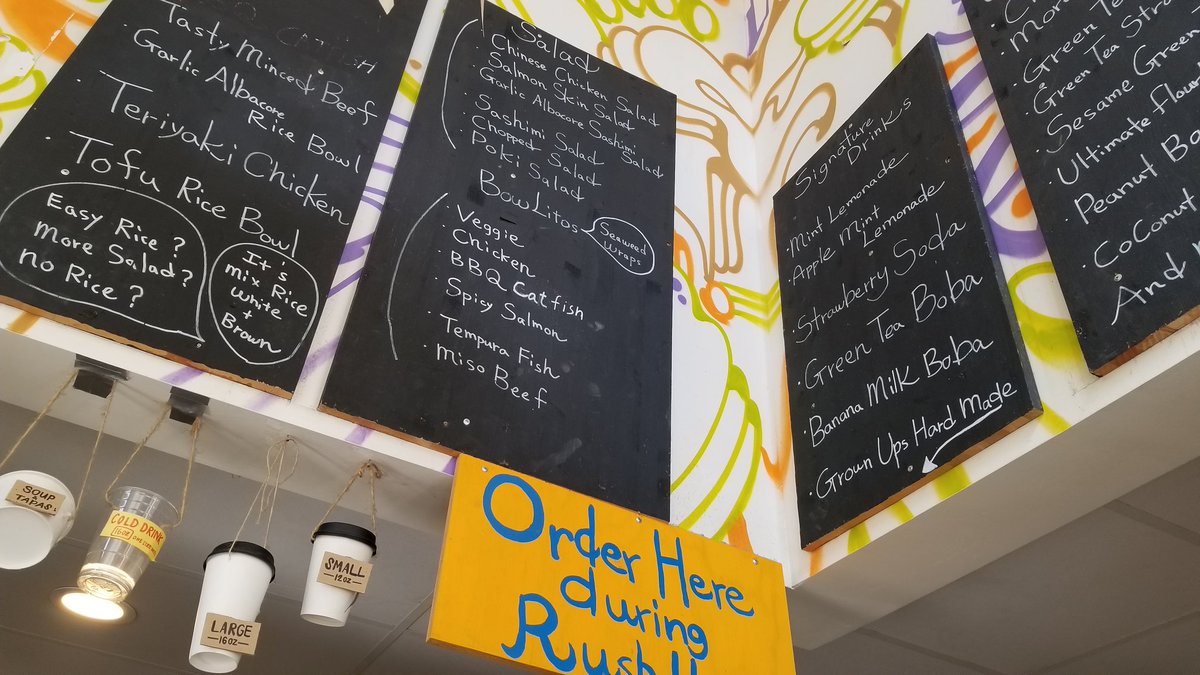 CATFISH
Tasty Minced Beef
Garlic Albacore
Rice Bowl
Teriyaki Chicken
Tofu Rice Bowl
Easy Rice?
more Salad?
no Rice?
It's
mix Rice
White
+
Brown
Salad
Chinese Chicken Salad
Salmon Skin Salad
Garlic Albacore Sashimi
Salad
Sashimi Salad
Chopped Salad
Poki Salad
BowLitos
Seaweed
wraps
· Veggie
· Chicken
· BBQ Catfish
· Spicy Salmon
· Tempura Fish
· Miso Beef
Signature
Drinks
· Mint Lemonade
· Apple Mint
Lemonade
· Strawberry Soda
· Green Tea Boba
· Banana Milk Boba
· Grown Ups Hard Made
· Green Tea
· Green Tea
· Sesame Green
· Ultimate
· Peanut
· CoConut
And
SOUP
&
TAPAS.
COLD DRINK
16oz
LARGE
—16oz—
SMALL
—12oz—
Order Here
during
Rush!!